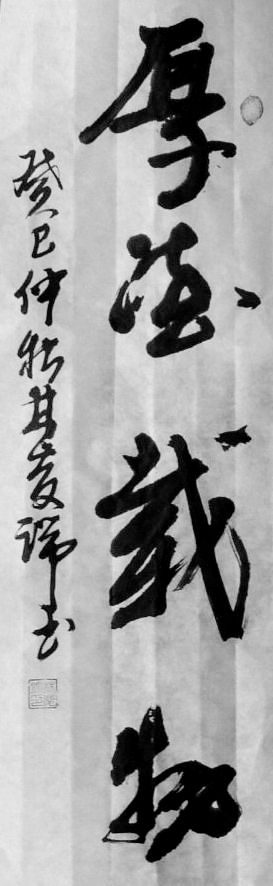 厚德载物
癸巳仲秋其发瑞书